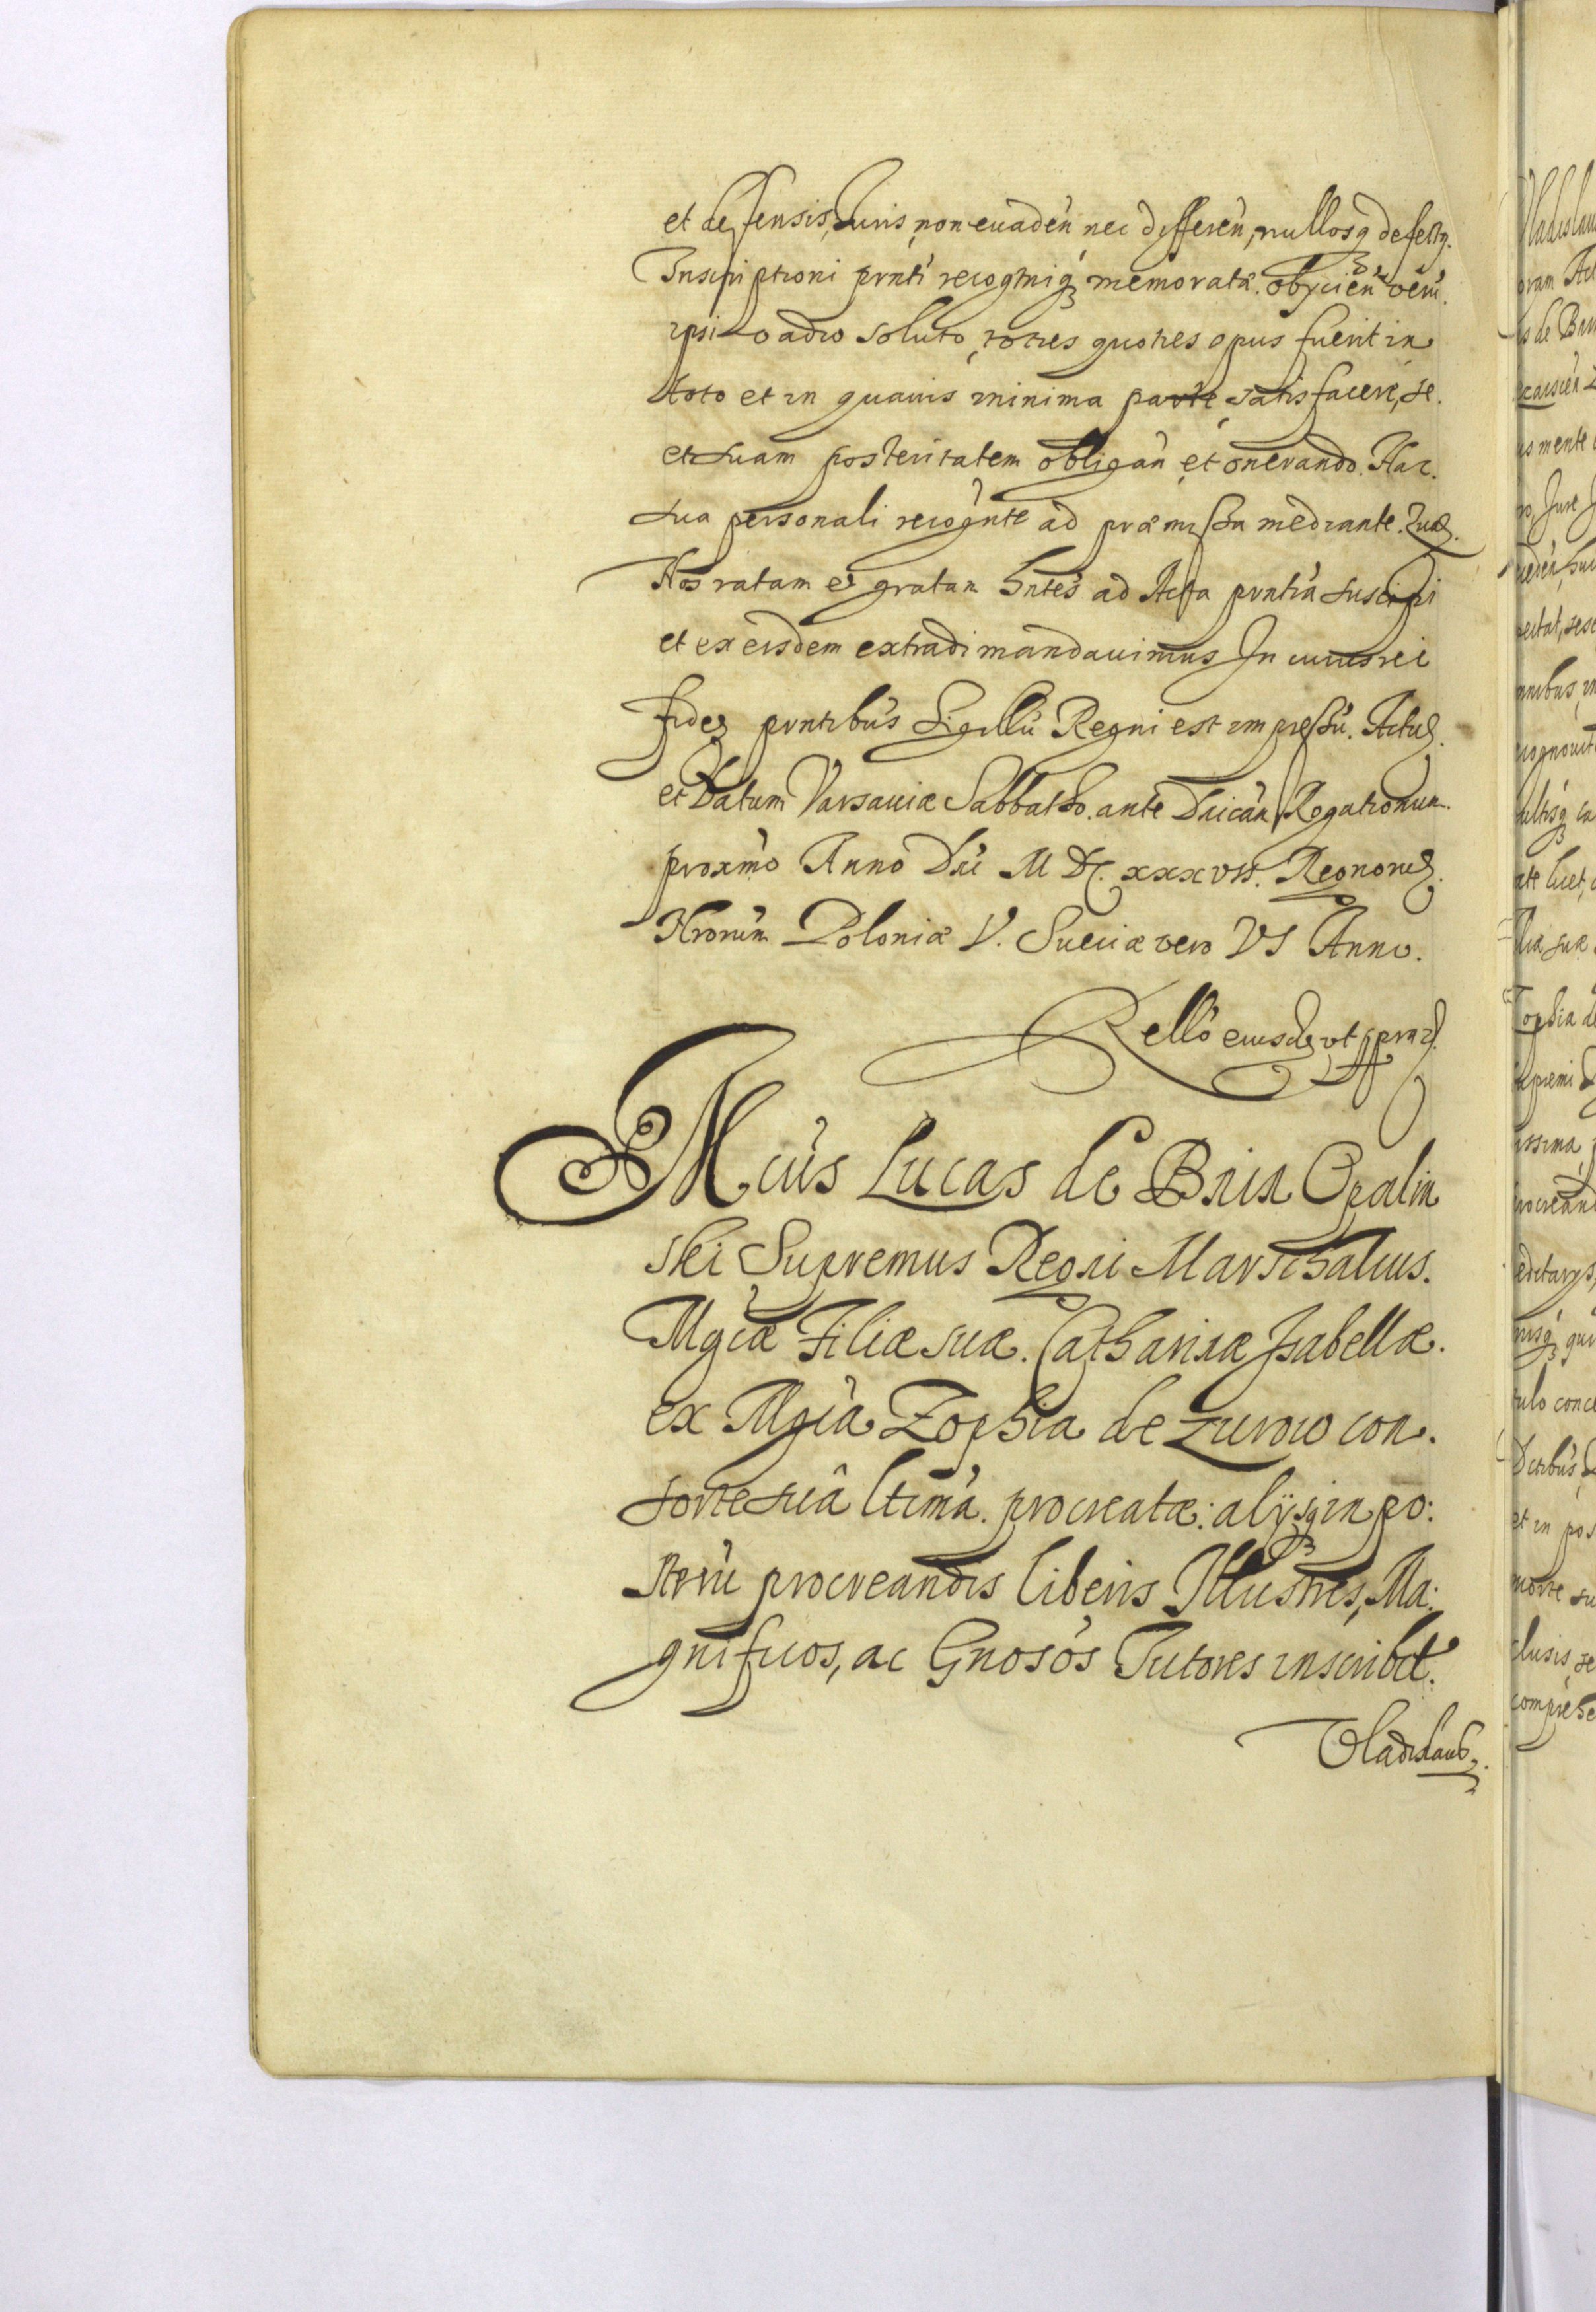 et defensis, Iuris, non euaden̄ nec differen̄, nullosq₃ defectꝯ.
Inscriptioni pn̄ti recog̃niq₃ memoratæ. obijcien̄ verū.
ipsi vadio soluto, toties quoties opus fuerit in
toto et in quauis minima parte, satisfacere, se.
et suam posteritatem obligan̄ et onerando. Hac.
sua personali recogn̄te ad præmissa mediante. Quā.
Nos ratam et gratam hn̄tes ad Acta pn̄tia suscipi
et ex eisdem extradi mandauimus In cuius rei
fidē pn̄tibus Sigillū Regni est impressū. Actū.
et Datum Varsauiæ Sabbatho. ante Dn̄icān Rogationum.
proxīmo Anno Dn̄i M DC. xxxvii. Regnorū.
Nr̄orum Poloniæ V. Sueciæ vero VI Anno.
Rellō eiusdē vt supra
Mcūs Lucas de Bnin Opalin
ski Supremus Regni Marschalcus.
Mgcæ Filiæ suæ. Catharinæ Isabellæ.
ex Mgcā Zophia de Zurow con.
sorte suâ ltīma. procreatæ: alÿsq₃ in po:
sterū procreandis liberis Illustres, Ma:
gnificos, ac Gnōsōs Tutores inscribit.
Vladislaus.